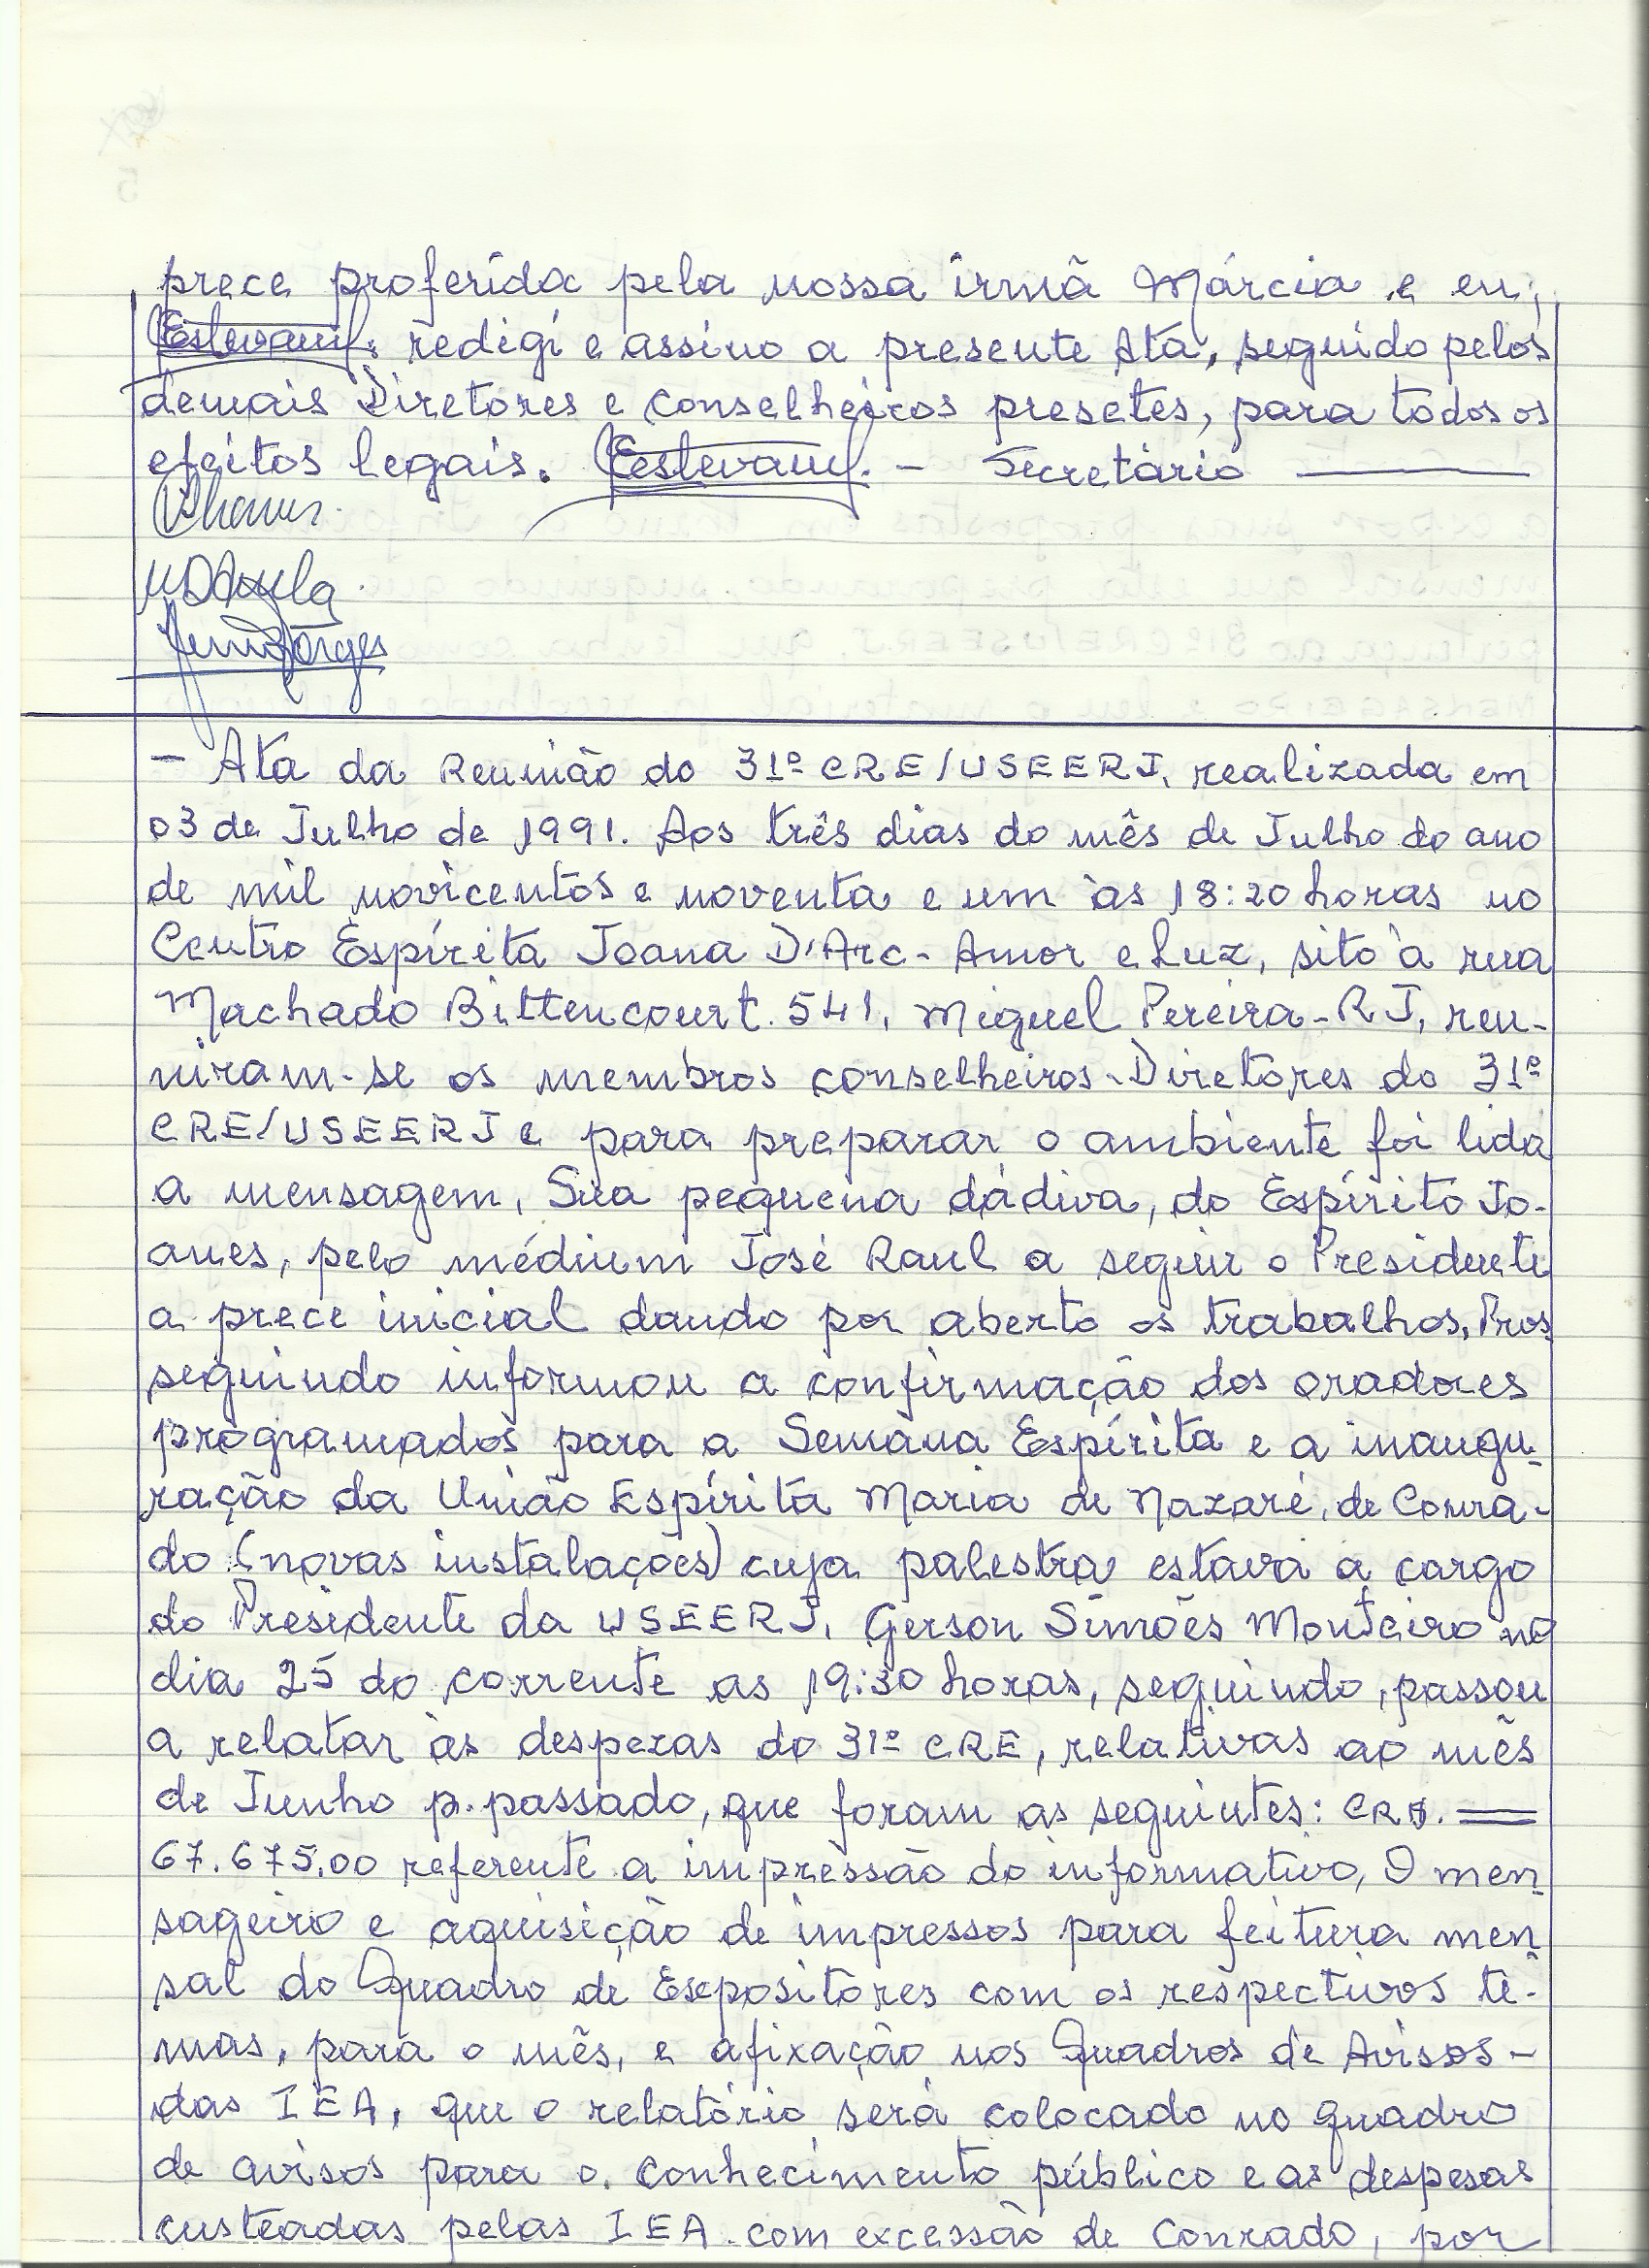 prece proferida pela nossa irmã Márcia e eu,
redigi e assino a presente Ata, seguido pelos
demais Diretores e Conselheiros presetes, para todos os
efeitos legais. - Secretário
- Ata da Reunião do 31º CRE/USEERJ, realizada em
03 de Julho de 1991. Aos três dias do mês de Julho do ano
de mil novicentos e noventa e um às 18:20 horas no
Centro Espírita Joana D'Arc - Amor e Luz, sito à rua
Machado Bittencourt. 541, Miguel Pereira - RJ, reu-
niram-se os membros conselheiros-Diretores do 31º
CRE/USEERJ e para preparar o ambiente foi lida
a mensagem, Sua pequena dádiva, do Espírito Jo-
anes, pelo médium José Raul a seguir o Presidente
a prece inicial dando por aberto os trabalhos, Pros
seguindo informou a confirmação dos oradores
programados para a Semana Espírita e a inaugu-
ração da União Espírita Maria de Nazaré, de Conra-
do (novas instalações) cuja palestra estava a cargo
do Presidente da USEERJ, Gerson Simões Monteiro no
dia 25 do corrente as 19:30 horas, seguindo, passou
a relatar às despezas do 31º CRE, relativas ao mês
de Junho p. passado, que foram as seguintes: CR$.
67.675,00 referente a impressão do informativo, O men
sageiro e aquisição de impressos para feitura men
sal do Quadro de Expositores com os respectivos te-
mas, para o mês, e afixação nos Quadros de Avisos -
das IEA, que o relatório será colocado no quadro
de avisos para o conhecimento público e as despesas
custeadas pelas IEA com excessão de Conrado, por